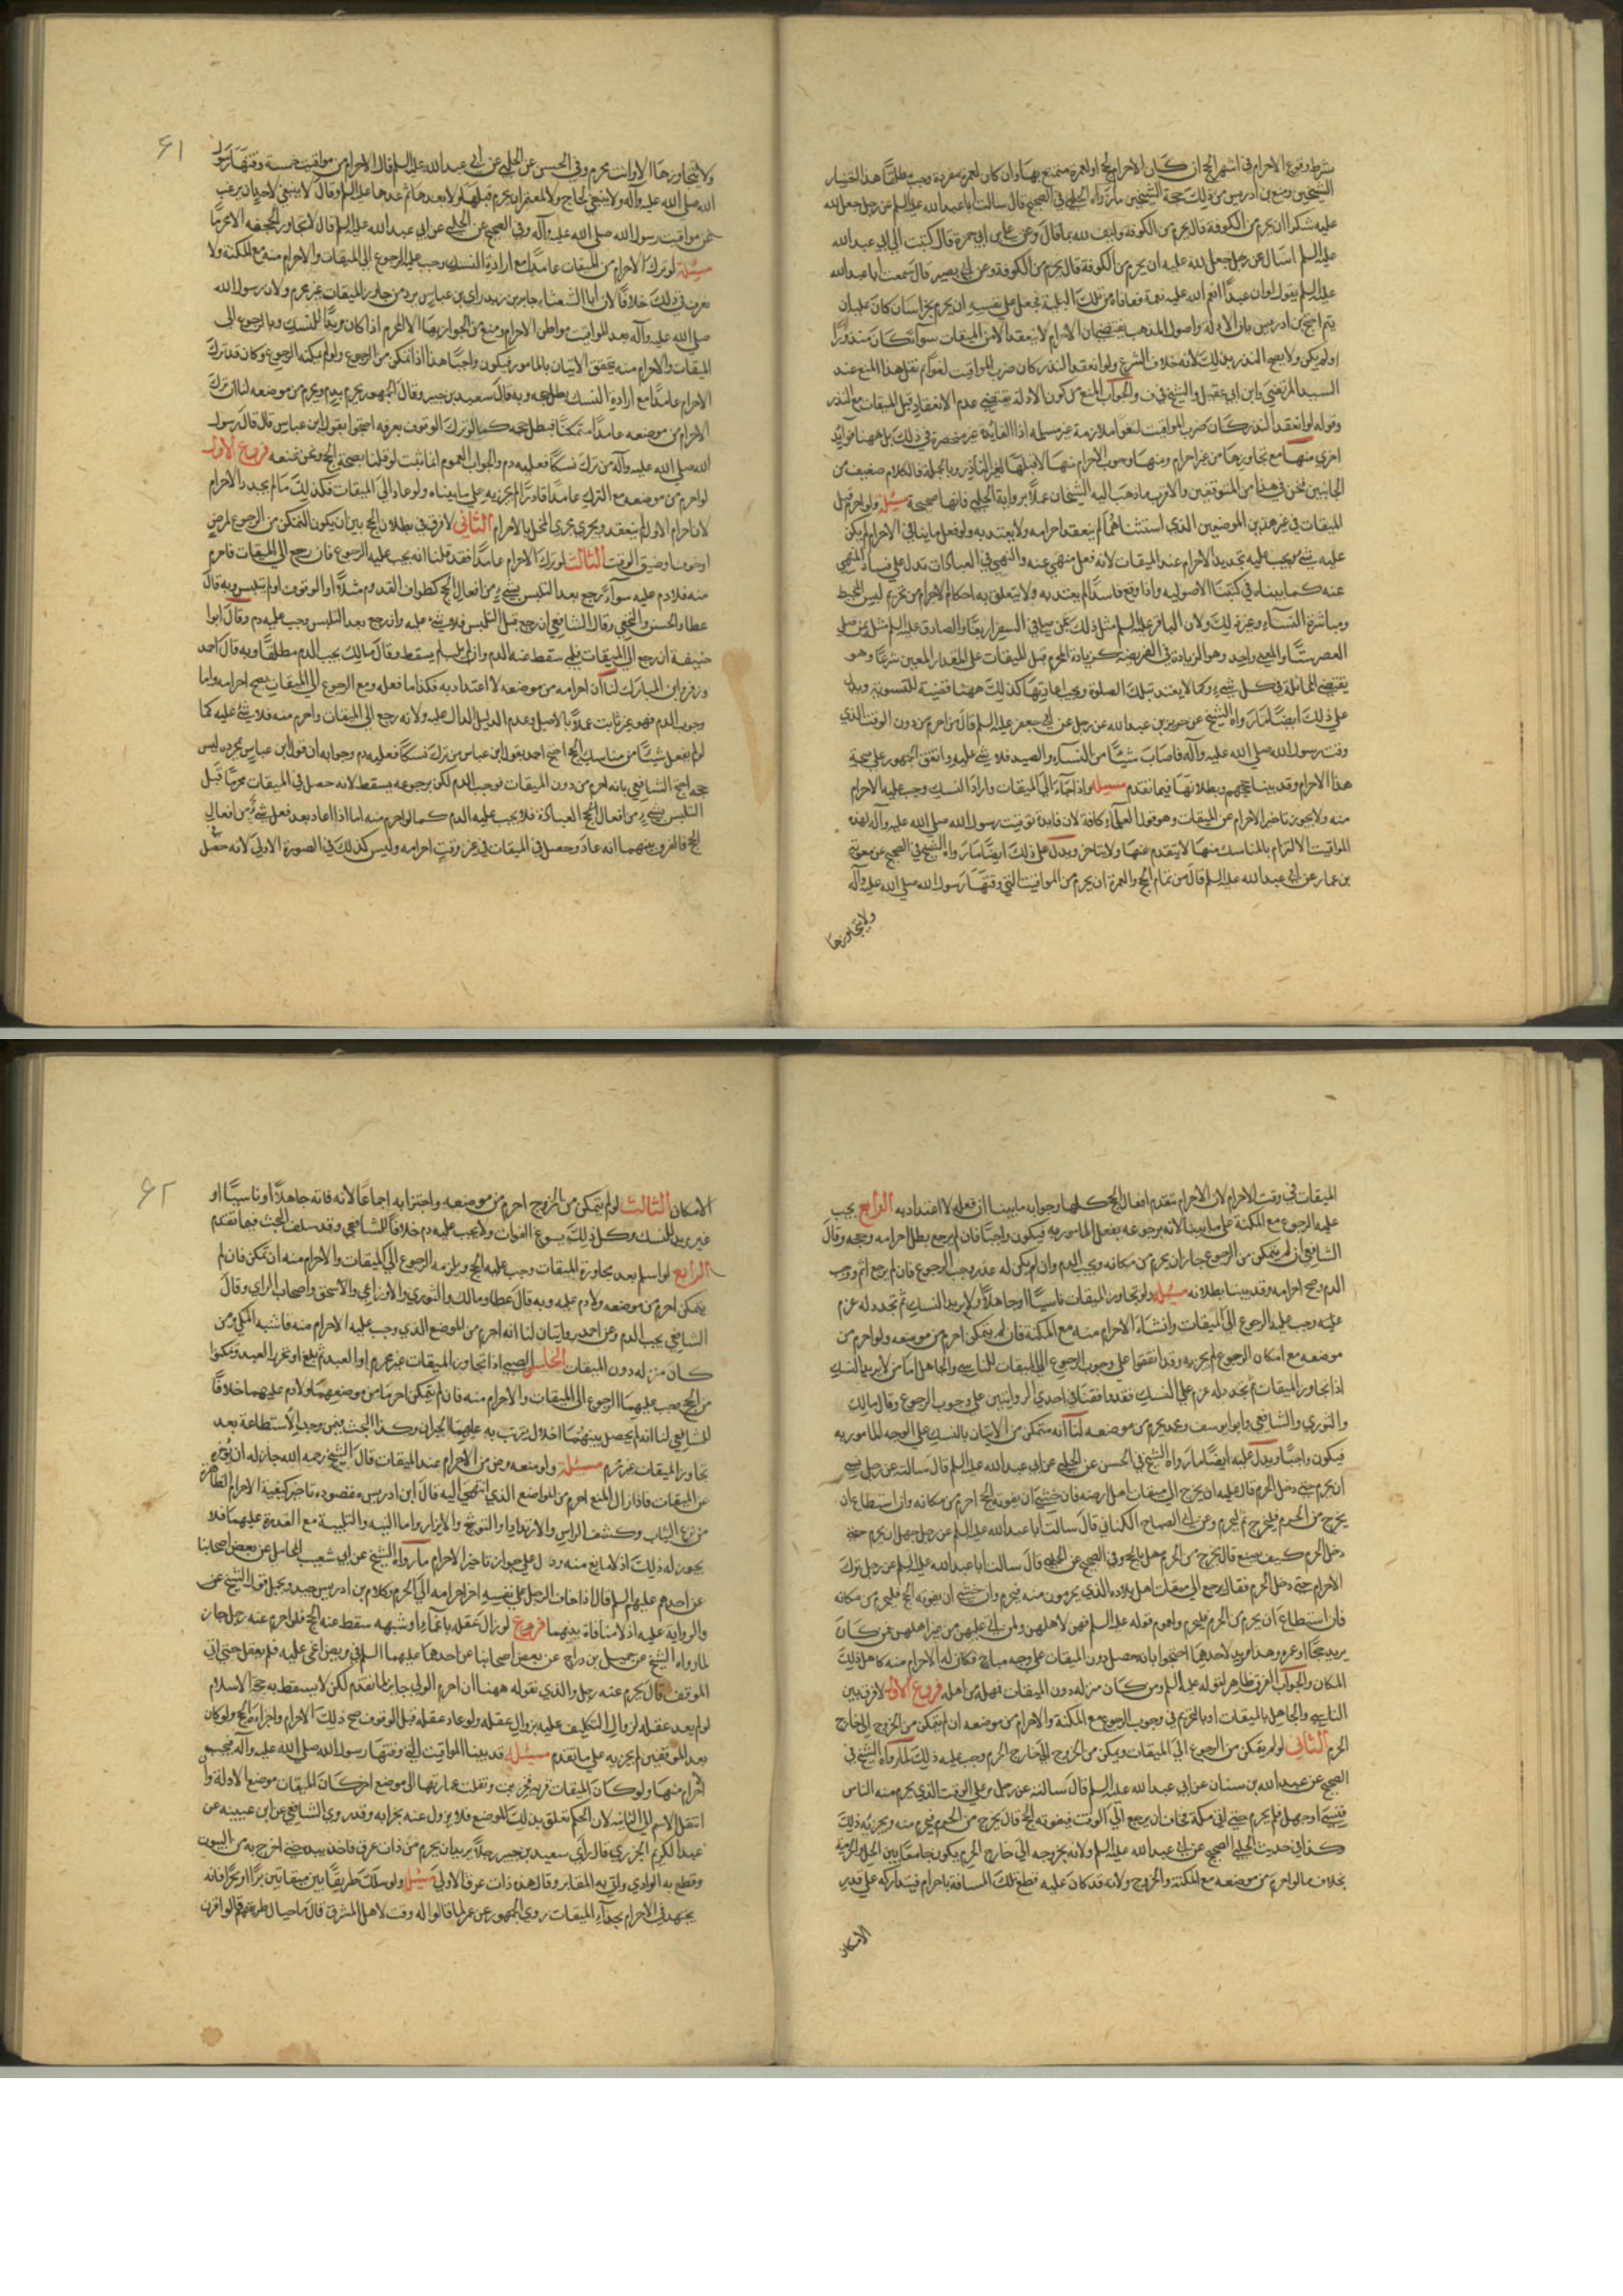 بشرط وقوع الاحرام فى اشهر الحج ان كان الاحرام لحج او لعمرة متمتع بها وان كان لعمرة مفردة وجب مطلقا هذا اختيار
الشيخين ومنع ابن ادريس من ذلك حجة الشيخين ما رواه الحلبي فى الصحيح قال سالت ابا عبد الله عليه السلم عن رجل جعل لله
عليه شكرا ان يحرم من الكوفة قال يحرم من الكوفة وليف لله بما قال وعن على بن ابي حمزة قال كتبت الى ابي عبد الله
عليه السلم اسال عن رجل جعل لله عليه ان يحرم من الكوفة قال يحرم من الكوفة وعن ابي بصير قال سمعت ابا عبد الله
عليه السلم يقول لو ان عبدا انعم الله عليه نعمة فعافاه من تلك البلية فجعل على نفسه ان يحرم بخراسان كان عليه ان
يتم احتج ابن ادريس بان الادلة واصول المذهب يقتضى ان الاحرام لا ينعقد الا من الميقات سوآء كان منذورا
او لم يكن ولا يصح النذر بذلك لانه خلاف الشرع ولو انعقد النذر كان ضرب المواقيت لغوا ثم نقل هذا المنع عند
السيد المرتضى وابن ابي عقيل والشيخ فى ف والجواب المنع من كون الادلة يقتضي عدم الانعقاد قبل الميقات مع النذر
وقوله لو انعقد النذر كان ضرب المواقيت لغوا ملازمة غير مسلمة اذ الفايدة غير منحصرة فى ذلك بل ههنا فوايد
اخرى منها منع تجاوزها من غير احرام ومنها وجوب الاحرام منها لا قبلها لغير الناذر وبالجملة فالكلام ضعيف من
الجانبين فنحن فى هذا من المتوقفين والاقرب ما ذهب اليه الشيخان عملا برواية الحلبي فانها صحيحة مسئلة ولو احرم قبل
الميقات فى غير هذين الموضعين الذي استثناهما لم ينعقد احرامه ولا يعتد به ولو فعل ما ينافي الاحرام لم يكن
عليه شئ ويجب عليه تجديد الاحرام عند الميقات لانه فعل منهي عنه والنهي فى العبادات تدل على فساد المنهي
عنه كما بيناه فى كتبنا الاصوليه واذا وقع فاسدا لم يعتد به ولا يتعلق به احكام الاحرام من تحريم لبس المخيط
ومباشرة النسآء وغير ذلك ولان الباقر عليه السلم مثل ذلك بمن صلى فى السفر اربعا والصادق عليه السلم مثل بمن صلى
العصر ستا والمعنى واحد وهو الزيادة فى الفريضة كزيادة المحرم قبل الميقات على المقدار المعين شرعا وهو
يقتضي المماثلة فى كل شئ وكما لا يعتد بتلك الصلوة ويجب اعادتها كذلك ههنا قضية للتسوية ويدل
على ذلك ايضا ما رواه الشيخ عن حريز بن عبد الله عن رجل عن ابي جعفر عليه السلم قال من احرم من دون الوقت الذي
وقت رسول الله صلى الله عليه وآله فاصاب شيئا من النسآء والصيد فلا شئ عليه واتفق الجمهور على صحة
هذا الاحرام وقد بينا حججهم وبطلانها فيما تقدم مسئلة واذا جآء الى الميقات واراد النسك وجب عليه الاحرام
منه ولا يجوز تاخير الاحرام عن الميقات وهو قول العلمآء كافة لان فايدة توقيت رسول الله صلى الله عليه وآله لهذه
المواقيت الالتزام بالمناسك منها لا يتقدم عنها ولا يتاخر ويدل على ذلك ايضا ما رواه الشيخ فى الصحيح عن معوية
بن عمار عن ابي عبد الله عليه السلم قال من تمام الحج والعمرة ان يحرم من المواقيت التى وقتها رسول الله صلى الله عليه وآله
ولا يتجاوزها
٦١
ولا يتجاوزها الا وانت محرم وفى الحسن عن الحلبي عن ابي عبد الله عليه السلم قال الاحرام من مواقيت خمسة وقتها رسول
الله صلى الله عليه وآله ولا ينبغي لحاج ولا لمعتمر ان يحرم قبلها ولا بعدها ثم عدها عليه السلم وقال لا ينبغي لاحد ان يرغب
عن مواقيت رسول الله صلى الله عليه وآله وفى الصحيح عن الحلبي عن ابي عبد الله عليه السلم قال لا تتجاوز الجحفه الا محرما
مسئلة لو ترك الاحرام من الميقات عامدا مع ارادة النسك وجب عليه الرجوع الى الميقات والاحرام منه مع المكنة ولا
نعرف فى ذلك خلافا لان ابا الشعثاء جابر بن زيد راي ابن عباس يرد من جاوز الميقات غير محرم ولان رسول الله
صلى الله عليه وآله بعد المواقيت مواطن الاحرام ومنع من الجواز بها الا لمحرم اذا كان مريدا للنسك وبالرجوع الى
الميقات والاحرام منه يتحقق الاتيان بالمامور فيكون واجبا هذا اذا تمكن من الرجوع ولو لم يمكنه الرجوع وكان قد ترك
الاحرام عامدا مع ارادة النسك بطل حجه وبه قال سعيد بن جبير وقال الجمهور يحرم بدم ويحرم من موضعه لنا انه ترك
الاحرام من موضعه عامدا متمكنا فبطل حجه كما لو ترك الوقوف بعرفه احتجوا بقول ابن عباس قال قال رسول
الله صلى الله عليه وآله من ترك نسكا فعليه دم والجواب العموم انما ثبت لو قلنا بصحة الحج ونحن نمنعه فروع الاول
لو احرم من موضعه مع الترك عامدا قادرا لم يجزيه على ما بيناه ولو عاد الى الميقات فكذلك ما لم يجدد الاحرام
لان احرام الاول لم ينعقد ويجري مجرى المخل بالاحرام الثاني لا فرق فى بطلان الحج بين ان يكون التمكن من الرجوع لمرض
او خوف او ضيق الوقت الثالث لو ترك الاحرام عامدا فقد قلنا انه يجب عليه الرجوع فان رجع الى الميقات فاحرم
منه فلا دم عليه سوآء رجع بعد التلبس بشئ من افعال الحج كطواف القدوم مثلا او الوقوف او لم يتلبس وبه قال
عطا والحسن والنخعي وقال الشافعي ان رجع قبل التلبس فلا شئ عليه وان رجع بعد التلبس وجب عليه دم وقال ابوا
حنيفة ان رجع الى الميقات فلبى سقط عنه الدم وان لم يلب لم يسقط وقال مالك يجب الدم مطلقا وبه قال احمد
وزفر وابن المبارك لنا ان احرامه من موضعه لا اعتداد به فكذا ما فعله ومع الرجوع الى الميقات يصح احرامه واما
وجوب الدم فهو غير ثابت عملا بالاصل وعدم الدليل الدال عليه ولانه رجع الى الميقات واحرم منه فلا شئ عليه كما
لو لم يفعل شيئا من مناسك الحج احتج احمد بقول ابن عباس من ترك نسكا فعليه دم وجوابه ان قول ابن عباس بمجرده ليس
حجه احتج الشافعي بانه احرم من دون الميقات فوجب الدم لكن برجوعه يسقط لانه حصل فى الميقات محرما قبل
التلبس بشئ من افعال الحج العبادة فلا يجب عليه الدم كما لو احرم منه اما اذا اعاد بعد فعل شئ من افعال
الحج فالفرق بينهما انه عاد وحصل فى الميقات فى غير وقت احرامه وليس كذلك فى الصورة الاولى لانه حصل
الميقات فى وقت الاحرام لان الاحرام متقدم افعال الحج كلها وجوابه ما بينا ان فعله لا اعتداد به الرابع يجب
عليه الرجوع مع المكنة على ما بينا لانه برجوعه يفعل المامور به فيكون واجبا فان لم يرجع بطل احرامه وحجه وقال
الشافعي ان لم يتمكن من الرجوع جاز ان يحرم من مكانه ويجب الدم وان لم يكن له عذر يجب الرجوع فان لم يرجع اثم ووجب
الدم وصح احرامه وقد بينا بطلانه مسئلة ولو تجاوز الميقات ناسيا او جاهلا او لا يريد النسك ثم تجدد له عزم
عليه وجب عليه الرجوع الى الميقات وانشاء الاحرام منه مع المكنة فان لم يتمكن احرم من موضعه ولو احرم من
موضعه مع امكان الرجوع لم يجزيه وقد اتفقوا على وجوب الرجوع الى الميقات للناسي والجاهل اما من لا يريد النسك
اذا تجاوز الميقات ثم تجدد له عزم على النسك فقد وافقنا فى احدى الروايتين على وجوب الرجوع وقال مالك
والثوري والشافعي وابو يوسف ومحمد يحرم من موضعه لنا انه متمكن من الاتيان بالنسك على الوجه المامور به
فيكون واجبا ويدل عليه ايضا ما رواه الشيخ فى الحسن عن الحلبي عن ابي عبد الله عليه السلم قال سالته عن رجل نسي
ان يحرم حتى دخل الحرم قال عليه ان يخرج الى ميقات اهل ارضه فان خشي ان يفوته الحج احرم من مكانه وان استطاع ان
يخرج من الحرم فليخرج ثم ليحرم وعن ابي الصباح الكناني قال سالت ابا عبد الله عليه السلم عن رجل جهل ان يحرم حتى
دخل الحرم كيف يصنع قال يخرج من الحرم يهل بالحج وفى الصحيح عن الحلبي قال سالت ابا عبد الله عليه السلم عن رجل ترك
الاحرام حتى دخل الحرم فقال يرجع الى ميقات اهل بلاده الذي يحرمون منه فيحرم وان خشي ان يفوته الحج فليحرم من مكانه
فان استطاع ان يحرم من الحرم فليحرم ولعموم قوله عليه السلم فهن لاهلهن ولمن اتى عليهن من غير اهلهن ممن كان
يريد حجا او عمره وهذا مريد لاحدهما احتجوا بانه حصل دون الميقات على وجه مباح فكان له الاحرام منه كاهل ذلك
المكان والجواب الفرق ظاهر لقوله عليه السلم ومن كان منزله دون الميقات فمهله من اهله فروع الاول لا فرق بين
الناسي والجاهل بالميقات او بالتحريم فى وجوب الرجوع مع المكنة والاحرام من موضعه ان لم يتمكن من الخروج الى خارج
الحرم الثاني لو لم يتمكن من الرجوع الى الميقات ويمكن من الخروج الى خارج الحرم وجب عليه ذلك لما رواه الشيخ فى
الصحيح عن عبد الله بن سنان عن ابي عبد الله عليه السلم قال سالته عن رجل مر على الوقت الذي يحرم منه الناس
فنسي او جهل فلم يحرم حتى اتى مكة فخاف ان يرجع الى الوقت فيفوته الحج قال يخرج من الحرم فيحرم منه ويجزيه ذلك
كذا فى حديث الحلبي الصحيح عن ابي عبد الله عليه السلم ولانه بخروجه الى خارج الحرم يكون جامعا بين الحل والحرمة
بخلاف ما لو احرم من موضعه مع المكنة والخروج ولانه قد كان عليه قطع تلك المسافة باحرام فيتداركه على قدر
الامكان
٦٢
الامكان الثالث لو لم يتمكن من الخروج احرم من موضعه واجتزا به اجماعا لانه فاته جاهلا او ناسيا او
غير مريد للنسك وكل ذلك يسوغ الفوات ولا يجب عليه دم خلافا للشافعي وقد سلف البحث فيما تقدم
الرابع لو اسلم بعد مجاوزة الميقات وجب عليه الحج ويلزمه الرجوع الى الميقات والاحرام منه ان تمكن فان لم
يتمكن احرم من موضعه ولا دم عليه وبه قال عطا ومالك والثوري والاوزاعي والاسحق واصحاب الراي وقال
الشافعي يجب الدم وعن احمد روايتان لنا انه احرم من الموضع الذي وجب عليه الاحرام منه فاشبه المكي ومن
كان منزله دون الميقات الخامس الصبي اذا تجاوز الميقات غير محرم او العبد ثم بلغ او تحرر العبد وتمكنوا
من الحج وجب عليهما الرجوع الى الميقات والاحرام منه فان لم يتمكن احرما من موضعهما ولا دم عليهما خلافا
للشافعي لنا انه لم يحصل بينهما اخلال يترتب به عليهما الجبران وكذا البحث فيمن وجد الاستطاعة بعد
تجاوز الميقات غير محرم مسئلة ولو منعه مرض من الاحرام عند الميقات قال الشيخ رحمه الله جاز له ان يؤخره
عن الميقات فاذا زال المنع احرم من المواضع الذي انتهى اليه قال ابن ادريس مقصوده تاخير كيفية الاحرام الظاهرة
من نزع الثياب وكشف الراس والارتداء والتوشح والايتزار واما النيه والتلبية مع القدرة عليهما فلا
يجوز له ذلك اذ لا مانع منه ودل على جواز تاخير الاحرام ما رواه الشيخ عن ابي شعيب المحاملي عن بعض اصحابنا
عن احدهم عليهم السلم قال اذا خاف الرجل على نفسه اخر احرامه الى الحرم وكلام بن ادريس جيد ويحمل قول الشيخ عن
والرواية عليه اذ لا منافاة بينهما فروع لو زال عقله باغماء او شبهه سقط عنه الحج فلو احرم عنه رجل جاز
لما رواه الشيخ عن جميل بن دراج عن بعض اصحابنا عن احدهما عليهما السلم فى مريض اغمى عليه فلم يعقل حتى اتى
الموقف قال يحرم عنه رجل والذي نقوله ههنا ان احرام الولي جايز لما تقدم لكن لا يسقط به حجة الاسلام
لو لم يعد عقله لزوال التكليف عليه بزوال عقله ولو عاد عقله قبل الوقوف صح ذلك الاحرام واجزاه الحج ولو كان
بعد الموقفين لم يجزيه على ما تقدم مسئلة قد بينا المواقيت التى وقتها رسول الله صلى الله عليه وآله فيجب
الاحرام منها ولو كان الميقات قرية فخربت ونقلت عمارتها الى موضع اخر كان الميقات موضع الاولة وان
انتقل الاسم الى الثانية لان الحكم تعلق بذلك الموضع فلا يزول عنه بخرابه وقد روى الشافعي عن ابن عيينه عن
عبد الكريم الجزري قال راى سعيد بن جبير رجلا يريد ان يحرم من ذات عرق فاخذ بيده حتى اخرج به من البيوت
وقطع به الوادي واتى به المقابر وقال هذه ذات عرق الاولى مسئلة ولو سلك طريقا بين ميقاتين برا او بحرا فانه
يجتهد فى الاحرام بحذآء الميقات روي الجمهور عن عمر لما قالوا له وقت لاهل المشرق قال ما حيال طريقهم قالوا قرن